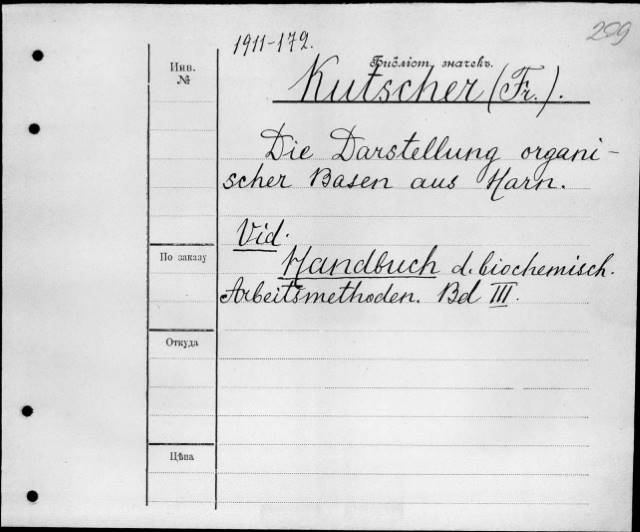 299
1911-172.
Инв.
№
Библіот. значекъ.
Kutscher (Fr.).
Die Darstellung organi-
scher Basen aus Harn.
Vid.
По заказу
Handbuch d. biochemisch.
Arbeitsmethoden. Bd III.
Откуда
Цѣна